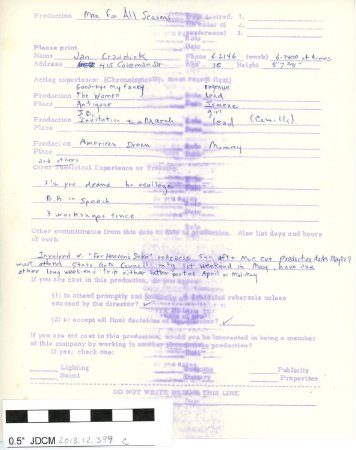 Production Man for All Seasons Part desired: 1.
(in order of 2.
preference) 3.
Please print
Name Jan Craddick Phone 6-2146 (work) 6-7400 at times
Address 415 Coleman Dr Age 38 Height 5'7 3/4"
Acting experience: (Chronologically, most recent first)
Goodbye My Fancy Ingenue
Production The Women Lead
Place Antigone Ismene
J.B. girl
Production Invitation to a March lead (Camilla)
Place
Production American Dream Mommy
Place
and others
Other Theatrical Experience or Training
3 1/2 yrs drama in college
B.A. in Speech
3 workshops since
Other commitments from this date to date of production. Also list days and hours
of work.
Involved w. "For Heaven's Sake" rehearse Sun after Mon eve. Production date May 8 & 9
must attend State Arts Council mtg 1st weekend in May, have one
other long weekend trip either latter part April or Mid-May
If you are cast in this production, do you agree:
(1) to attend promptly and faithfully all scheduled rehearsals unless
excused by the director? ✓
(2) to accept all final decisions of the director? ✓
If you are not cast in this production, would you be interested in being a member
of this company by working in another phase of the production?
If yes, check one:
Lighting Publicity
Sound Properties
DO NOT WRITE BELOW THIS LINE
0.5" JDCM 2013.12.399 c